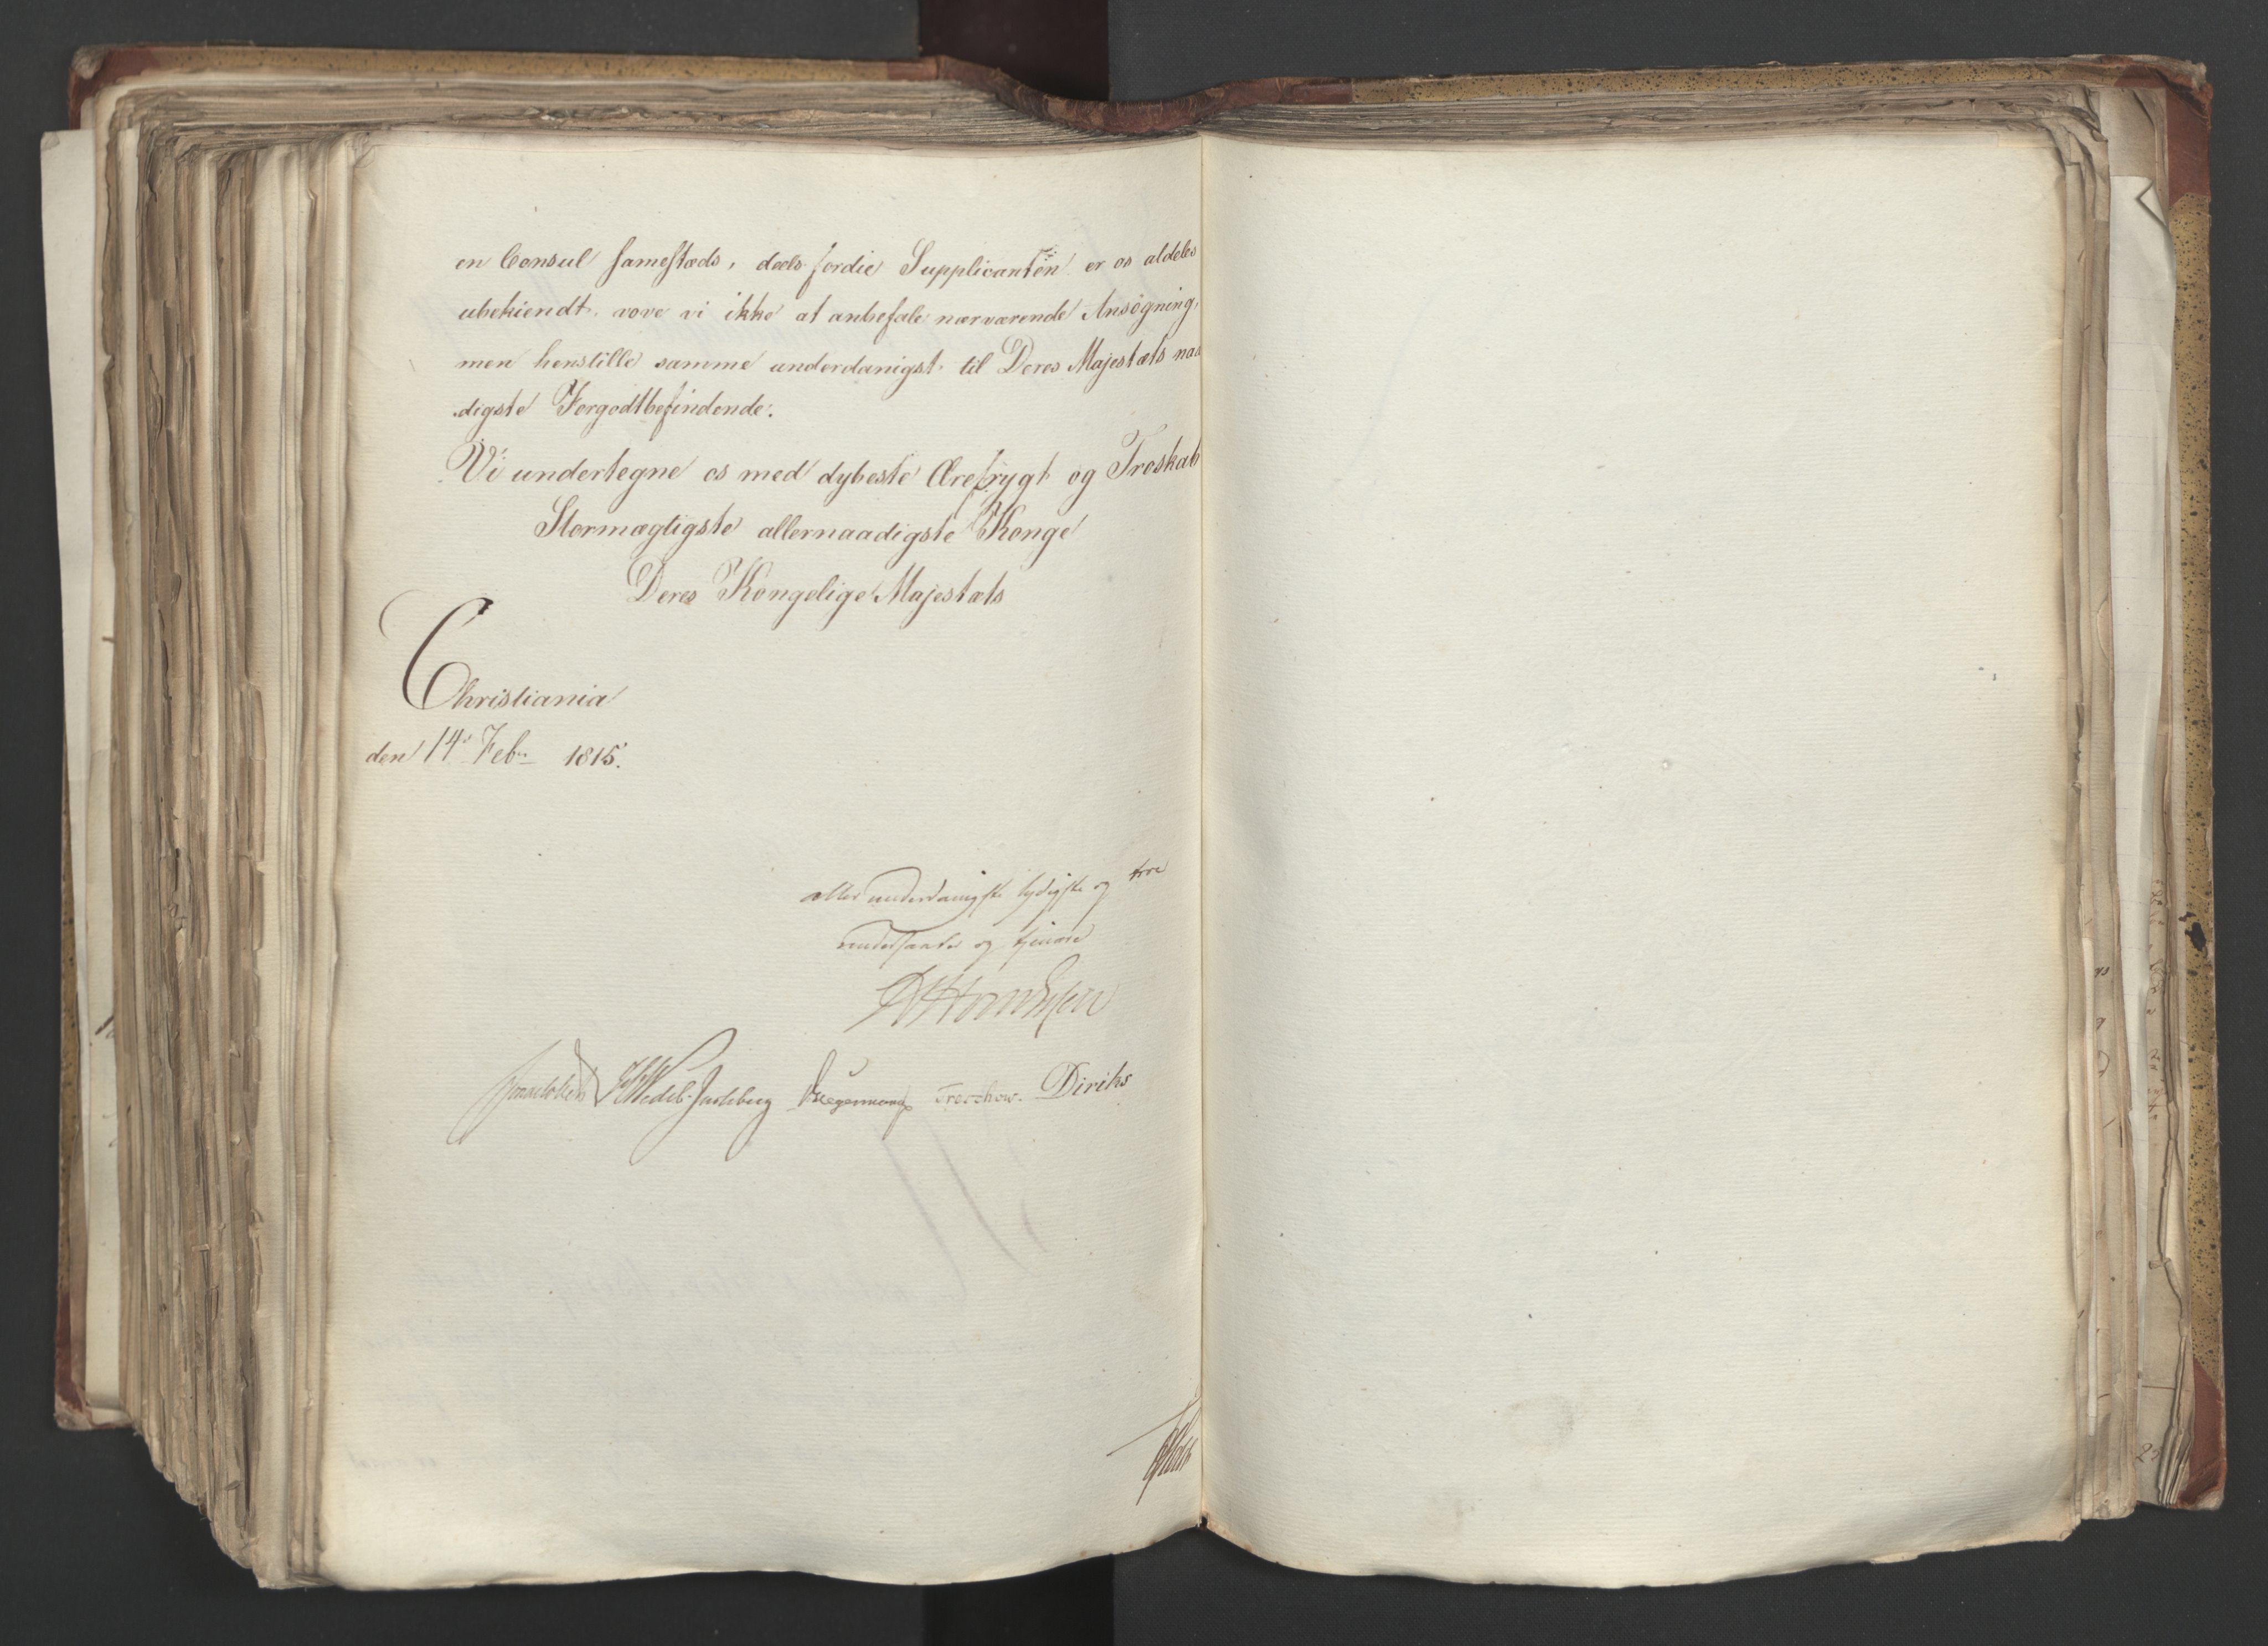 en Consul samesteds, deels fordie Supplicanten er os aldeles
ubekiendt, vove vi ikke at anbefale nærværende Ansøgning,
men henstille samme underdanigst til Deres Majestæts naa
digste Forgodtbefindende.
Vi undertegne os med dybeste Ærefrygt og Troskab
Stormægtigste allernaadigste Konge
Deres Kongelige Majestæts
Christiania
den 14de Febr 1815.
allerunderdanigste lydigste og troe
undersaatter og tjenere
Wedel-Jarlsberg Hegermann Treschow. Diriks